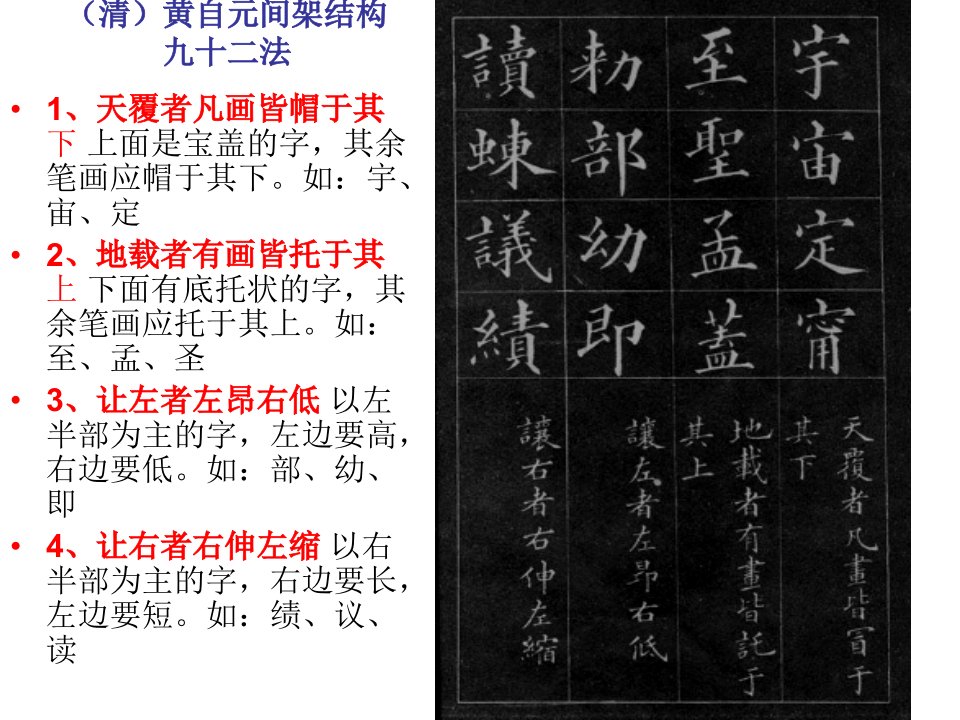 （清）黄自元间架结构
九十二法
• 1、天覆者凡画皆帽于其
下 上面是宝盖的字，其余
笔画应帽于其下。如：宇、
宙、定
• 2、地载者有画皆托于其
上 下面有底托状的字，其
余笔画应托于其上。如：
至、孟、圣
• 3、让左者左昂右低 以左
半部为主的字，左边要高，
右边要低。如：部、幼、
即
• 4、让右者右伸左缩 以右
半部为主的字，右边要长，
左边要短。如：绩、议、
读
宇宙定甯
天覆者凡畫皆冒于
其下
至聖孟蓋
地載者有畫皆託于
其上
勑部幼即
讓左者左昂右低
讀蝀議績
讓右者右伸左縮